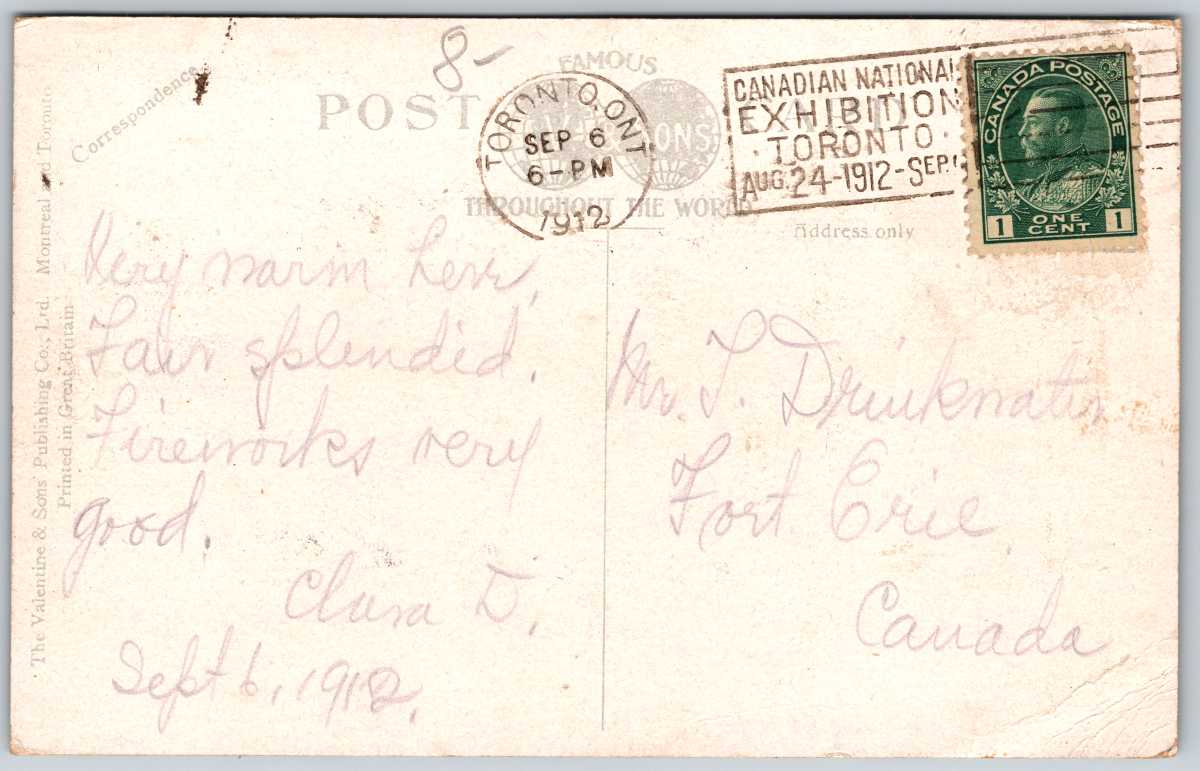 8-
Correspondence
FAMOUS
POST
SONS
THROUGHOUT THE WORLD
Address only
TORONTO, ONT
SEP 6
6-PM
1912
CANADIAN NATIONAL
EXHIBITION
TORONTO
AUG. 24-1912-SEP.
CANADA POSTAGE
1 ONE CENT 1
The Valentine & Sons' Publishing Co., Ltd. Montreal and Toronto
Printed in Great Britain
Very warm here,
Fair splendid.
Fireworks very
good.
Clara D.
Sept 6, 1912.
Mr. T. Drinkwater
Fort Erie
Canada